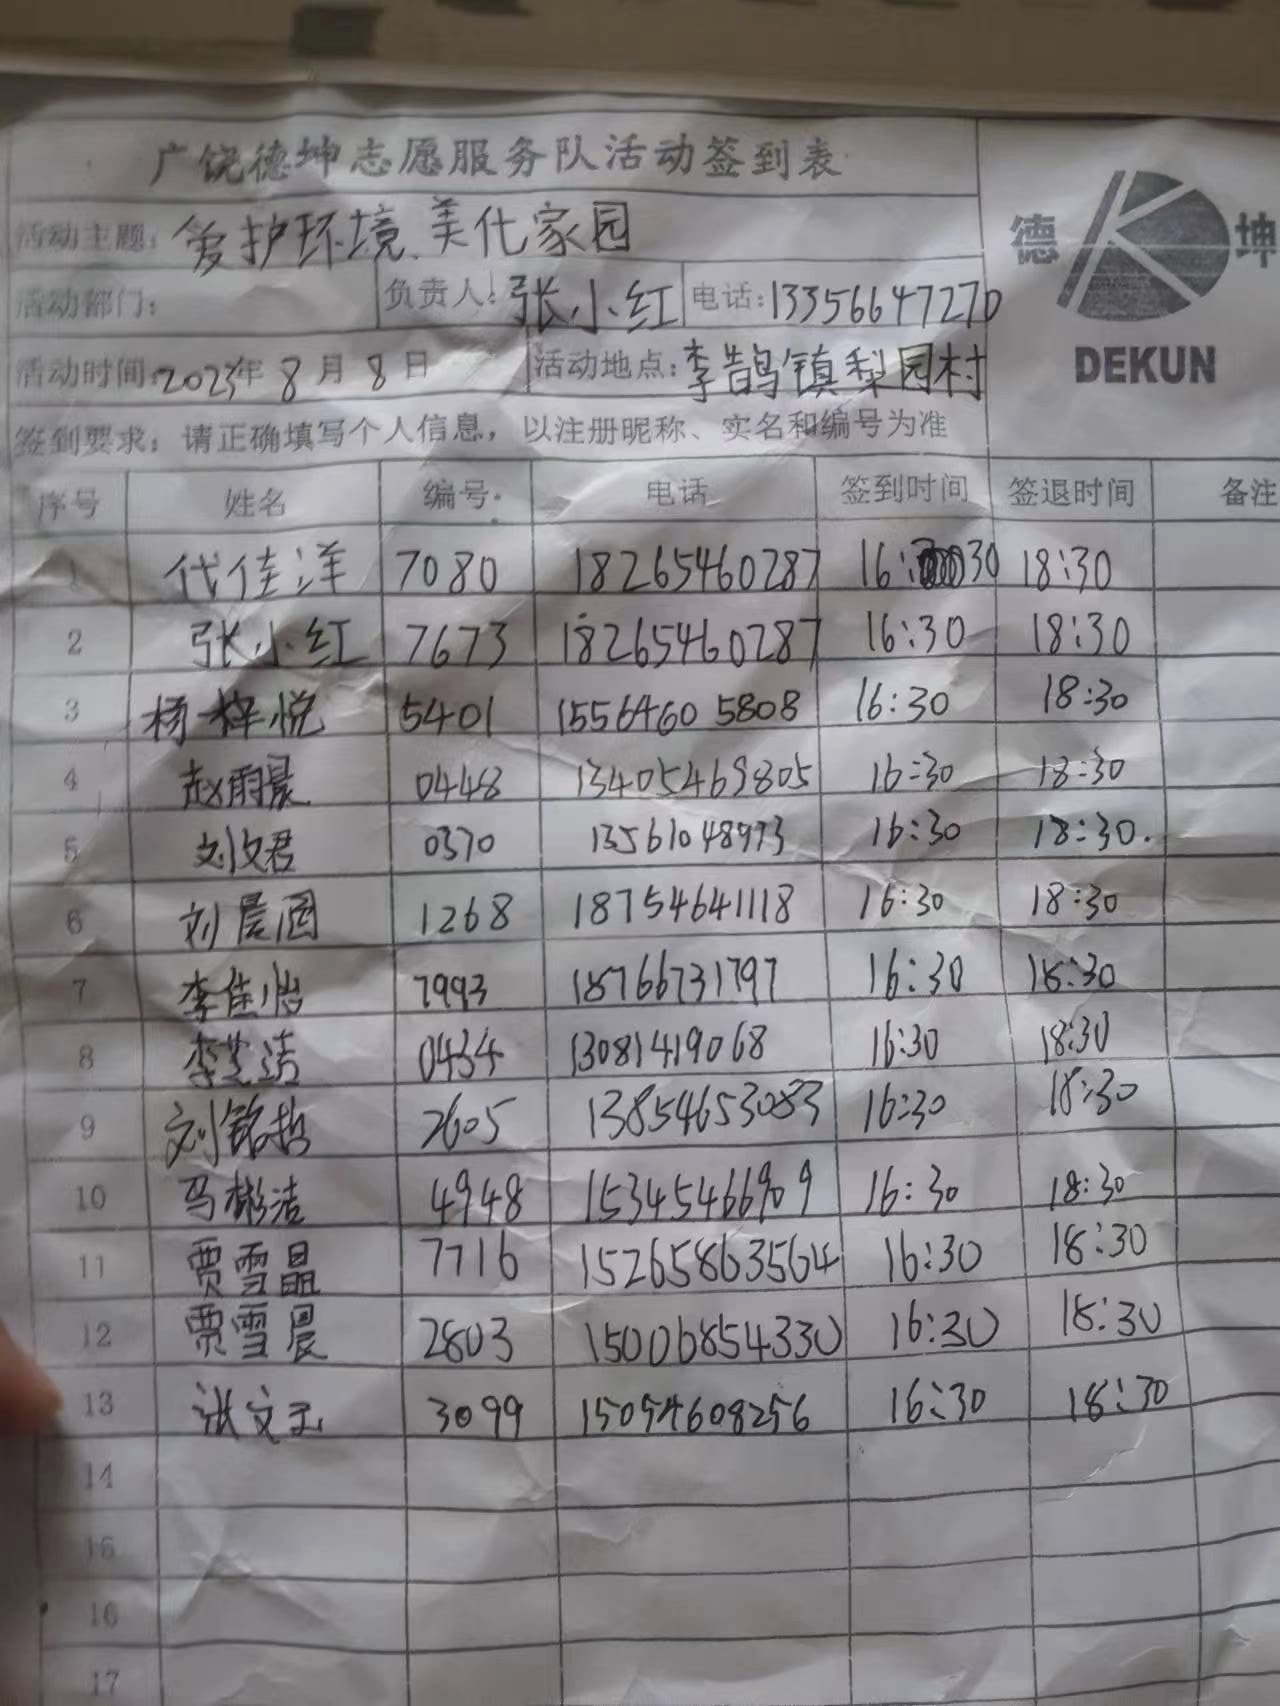 广饶德坤志愿服务队活动签到表
德 坤
DEKUN
活动主题: 爱护环境、美化家园
活动部门: 负责人: 张小红 电话: 13356647270
活动时间: 2023年 8 月 8 日 活动地点: 李鹊镇梨园村
签到要求: 请正确填写个人信息, 以注册昵称、实名和编号为准
序号 姓名 编号 电话 签到时间 签退时间 备注
1 代佳洋 7080 18265460287 16:30 18:30
2 张小红 7673 18265460287 16:30 18:30
3 杨梓悦 5401 15564605808 16:30 18:30
4 赵雨晨 0448 13405469805 16:30 18:30
5 刘文君 0370 13561048973 16:30 18:30.
6 刘晨涵 1268 18754641118 16:30 18:30
7 李佳怡 7993 18766731797 16:30 18:30
8 李艺洁 0434 13081419068 16:30 18:30
9 刘铭哲 2605 13854653083 16:30 18:30
10 马彬洁 4948 15345466909 16:30 18:30
11 贾雪晶 7716 15265863564 16:30 18:30
12 贾雪晨 2803 15006854330 16:30 18:30
13 张文玉 3099 15054608256 16:30 18:30
14
15
16
17